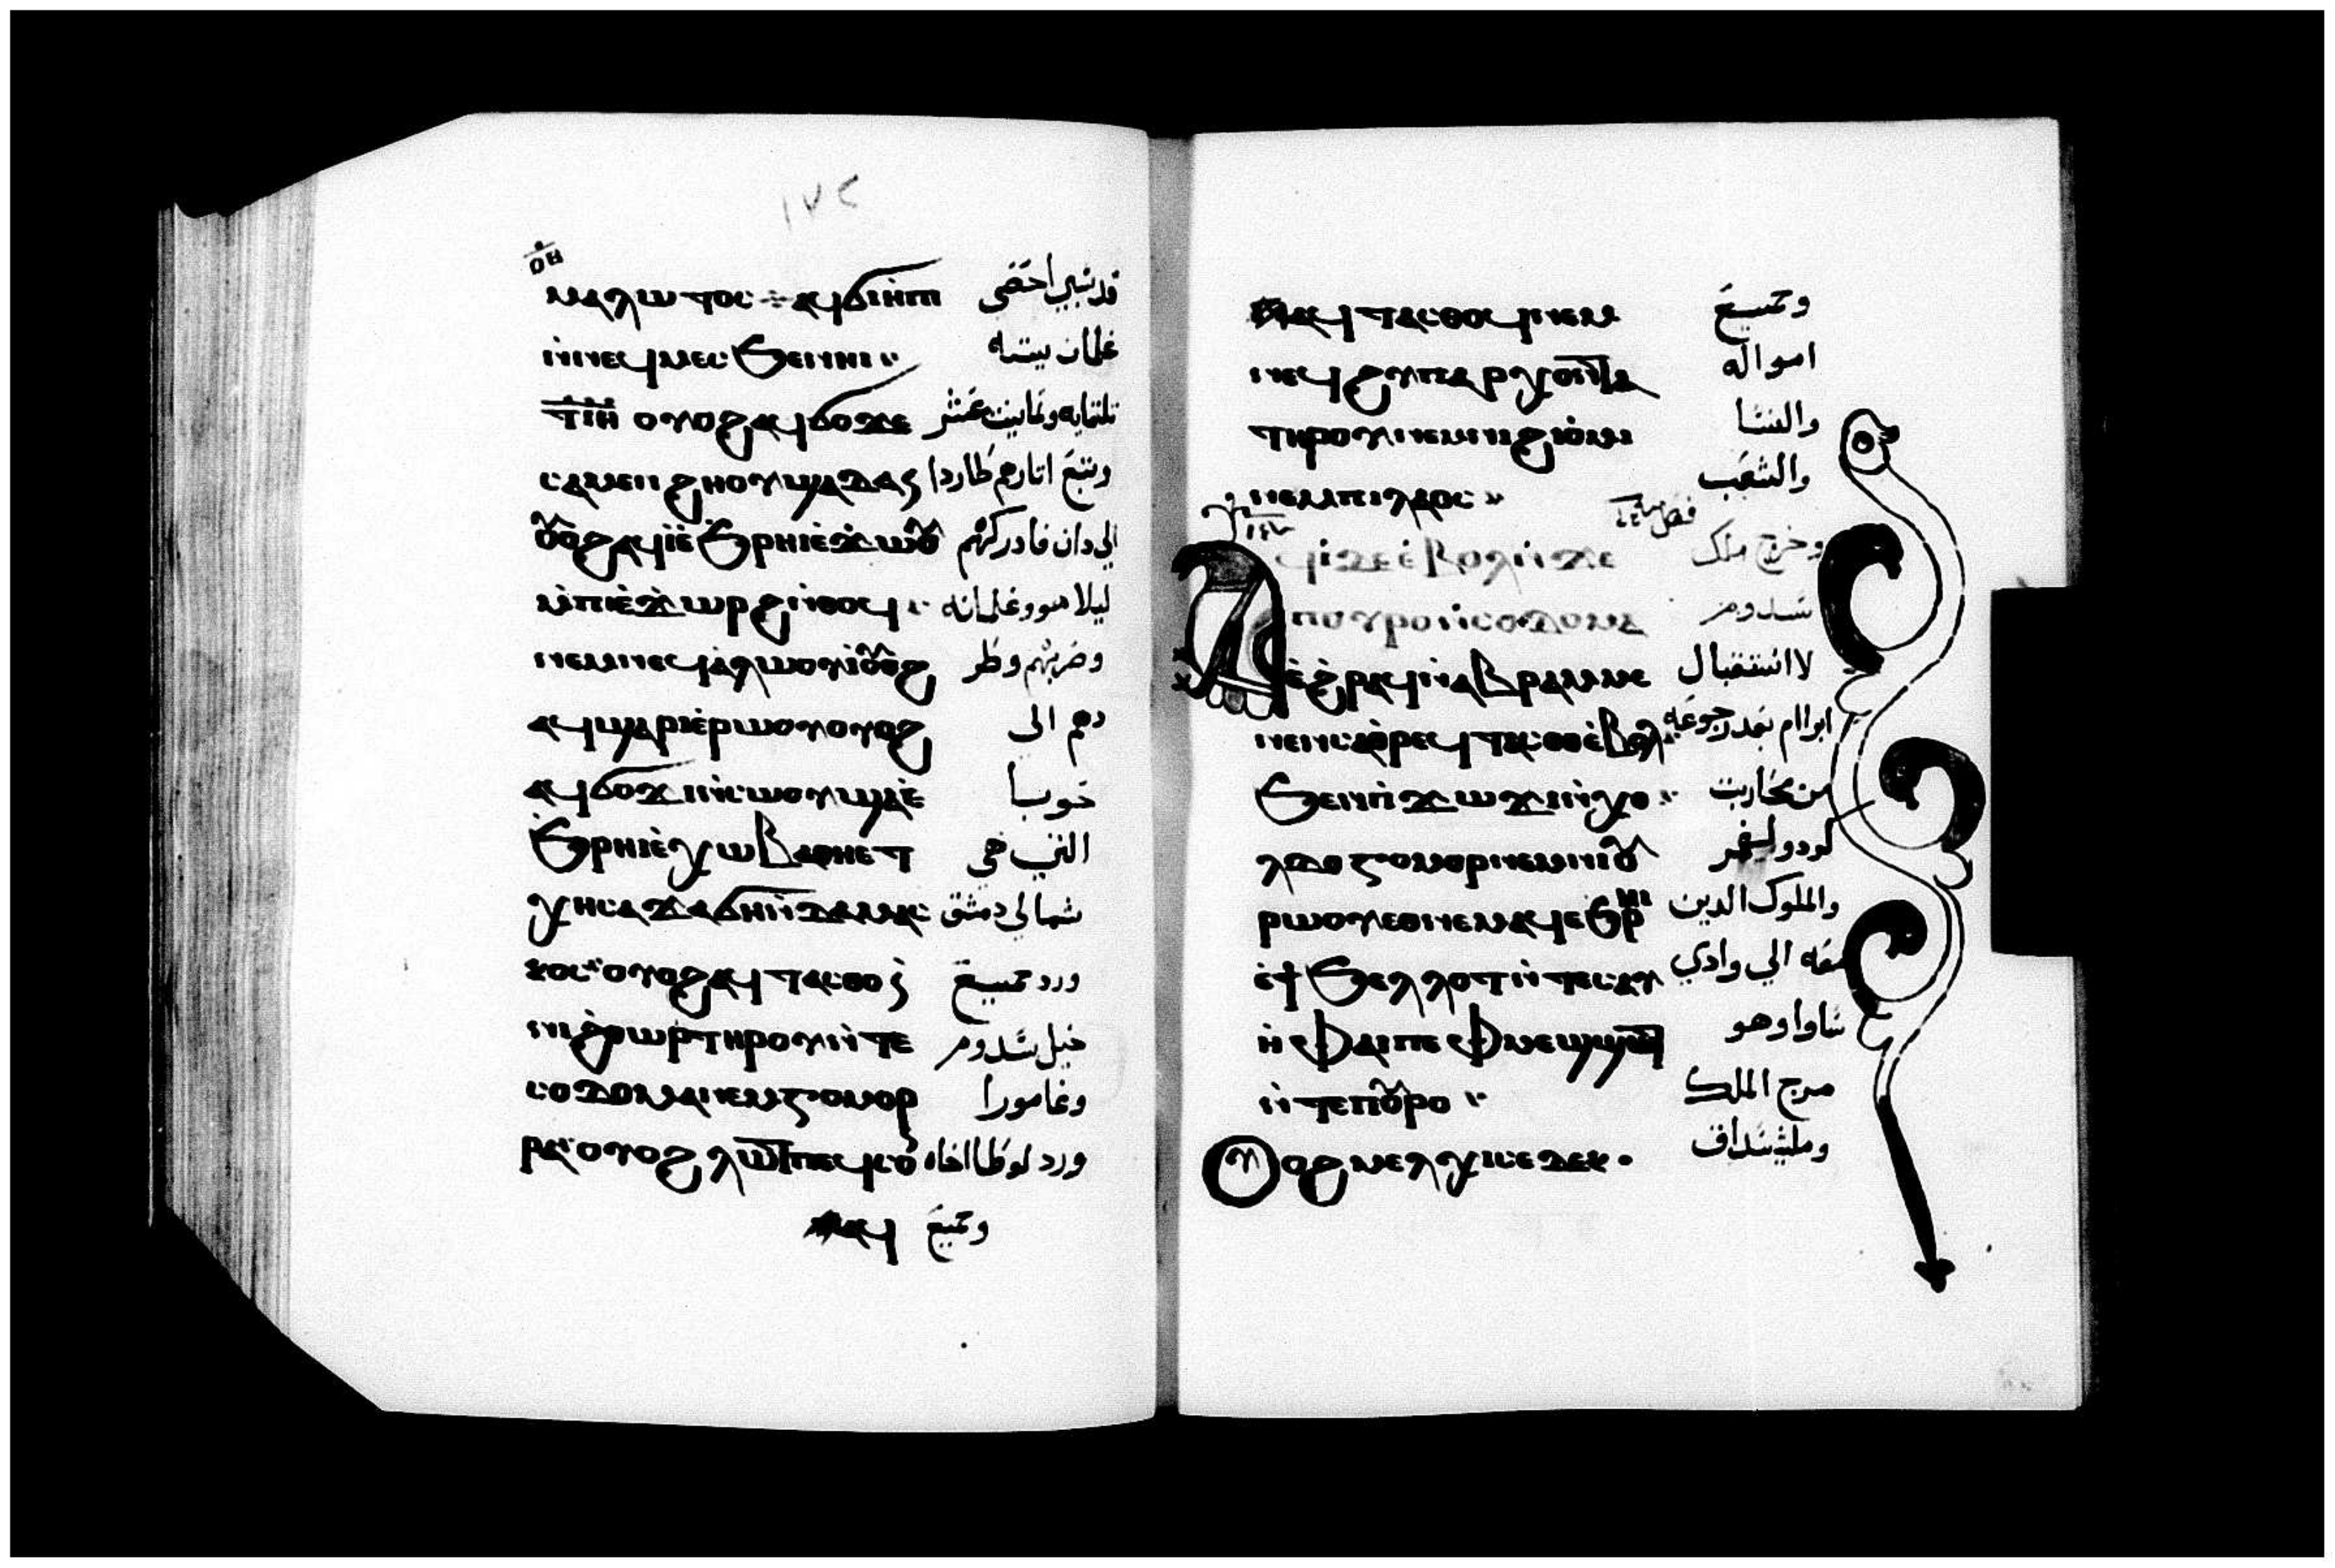 ١٧٢
ⲟ̅ⲏ̅
ⲙⲁⲗⲱⲧⲟⲥ ⁘ ⲁϥϭⲓⲏ̀ⲡⲓ قد سبي احصى
ⲛ̀ⲛⲉϥⲙⲉⲥϧⲉⲛⲏⲓ غلمان بيته
ⲧ̅ⲓ̅ⲏ̅ ⲟⲩⲟϩⲁϥϭⲟϫⲉ تلتمايه وتمانيت عشر
ⲥⲁⲙⲉⲛϩⲏⲟⲩϣⲁⲇⲁⲛ وتبع اتارهم طاردا
ⲟⲩⲟϩⲁϥⲓ̀ⲉ̀ϧⲣⲏⲓⲉ̀ϫⲱⲟⲩ الي دان فادركهم
ⲙ̀ⲡⲓⲉ̀ϫⲱⲣϩⲛ̀ⲑⲟϥ ليلا هو وغلمانه
ⲛⲉⲙⲛⲉϥⲁ̀ⲗⲱⲟⲩⲓ̀ⲟⲩⲟϩ وضربهم وطر
ⲁϥϣⲁⲣⲓⲉ̀ⲣⲱⲟⲩⲟⲩⲟϩ دهم الى
ⲁϥϭⲟϫⲓⲛ̀ⲥⲱⲟⲩϣⲁⲉ̀ حوبا
ϧⲣⲏⲓⲉ̀ⲭⲱⲃⲁⲑⲏⲉⲧ التي هي
ⲭⲏⲥⲁϫⲁϭⲏⲛ̀ⲇⲁⲙⲁⲥ شمالي دمشق
ⲕⲟⲥ ⲟⲩⲟϩⲁϥⲧⲁⲥⲑⲟ ورد جميع
ⲛ̀ⲛⲓϩ̀ⲑⲱⲣⲧⲏⲣⲟⲩⲛ̀ⲧⲉ خيل سدوم
ⲥⲟⲇⲟⲙⲁⲛⲉⲙⲅⲟⲙⲟⲣ وغامورا
ⲣⲁ ⲟⲩⲟϩ ⲗⲱⲧⲡⲉϥⲥⲟⲛ ورد لوطا اخاه
ⲁϥ وجميع
ⲁϥⲧⲁⲥⲑⲟϥⲛⲉⲙ وجميع
ⲛⲉϥϩⲩⲡⲁⲣⲭⲟⲛⲧⲁ امواله
ⲧⲏⲣⲟⲩⲛⲉⲙⲛⲓϩⲓⲟ̀ⲙⲓ والنسا
ⲛⲉⲙⲡⲓⲗⲁⲟⲥ والشعب
ⲁϥⲓ̀ⲇⲉⲉ̀ⲃⲟⲗⲛ̀ϫⲉ وخرج ملك
ⲡⲟⲩⲣⲟⲛ̀ⲥⲟⲇⲟⲙⲁ سدوم
ⲉ̀ϩ̀ⲣⲁϥⲛ̀ⲁⲃⲣⲁⲙⲙⲉ لاستقبال
ⲙⲉⲛⲉⲛⲥⲁⲑⲣⲉϥⲧⲁⲥⲑⲟⲉ̀ⲃⲟⲗ ابرام بعد رجوعه
ϧⲉⲛⲡ̀ϫⲱϫⲡⲛ̀ⲭⲟ من محاربت
ⲗⲇⲟⲅⲟⲙⲟⲣⲛⲉⲙⲛⲓⲟⲩ
ⲣⲱⲟⲩⲉⲑⲛⲉⲙⲁϥⲉϧⲣⲏⲓ والملوك الدين
ⲉ̀ϯϧⲉⲗⲗⲟⲧⲛ̀ⲧⲉⲥⲁⲩ معه الى وادي
ⲏ̀ ⲫⲁⲓⲡⲉⲫⲙⲉϣϣⲟⲧ شاوا وهو
ⲛ̀ⲧⲉⲡⲟⲩⲣⲟ مرج الملك
ⲟⲩⲟϩ ⲙⲉⲗⲭⲓⲥⲉⲇⲉⲕ وملشيسداق